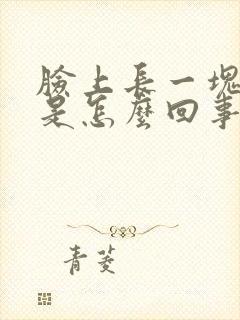 臉上長一塊
是怎麼回事
青菱